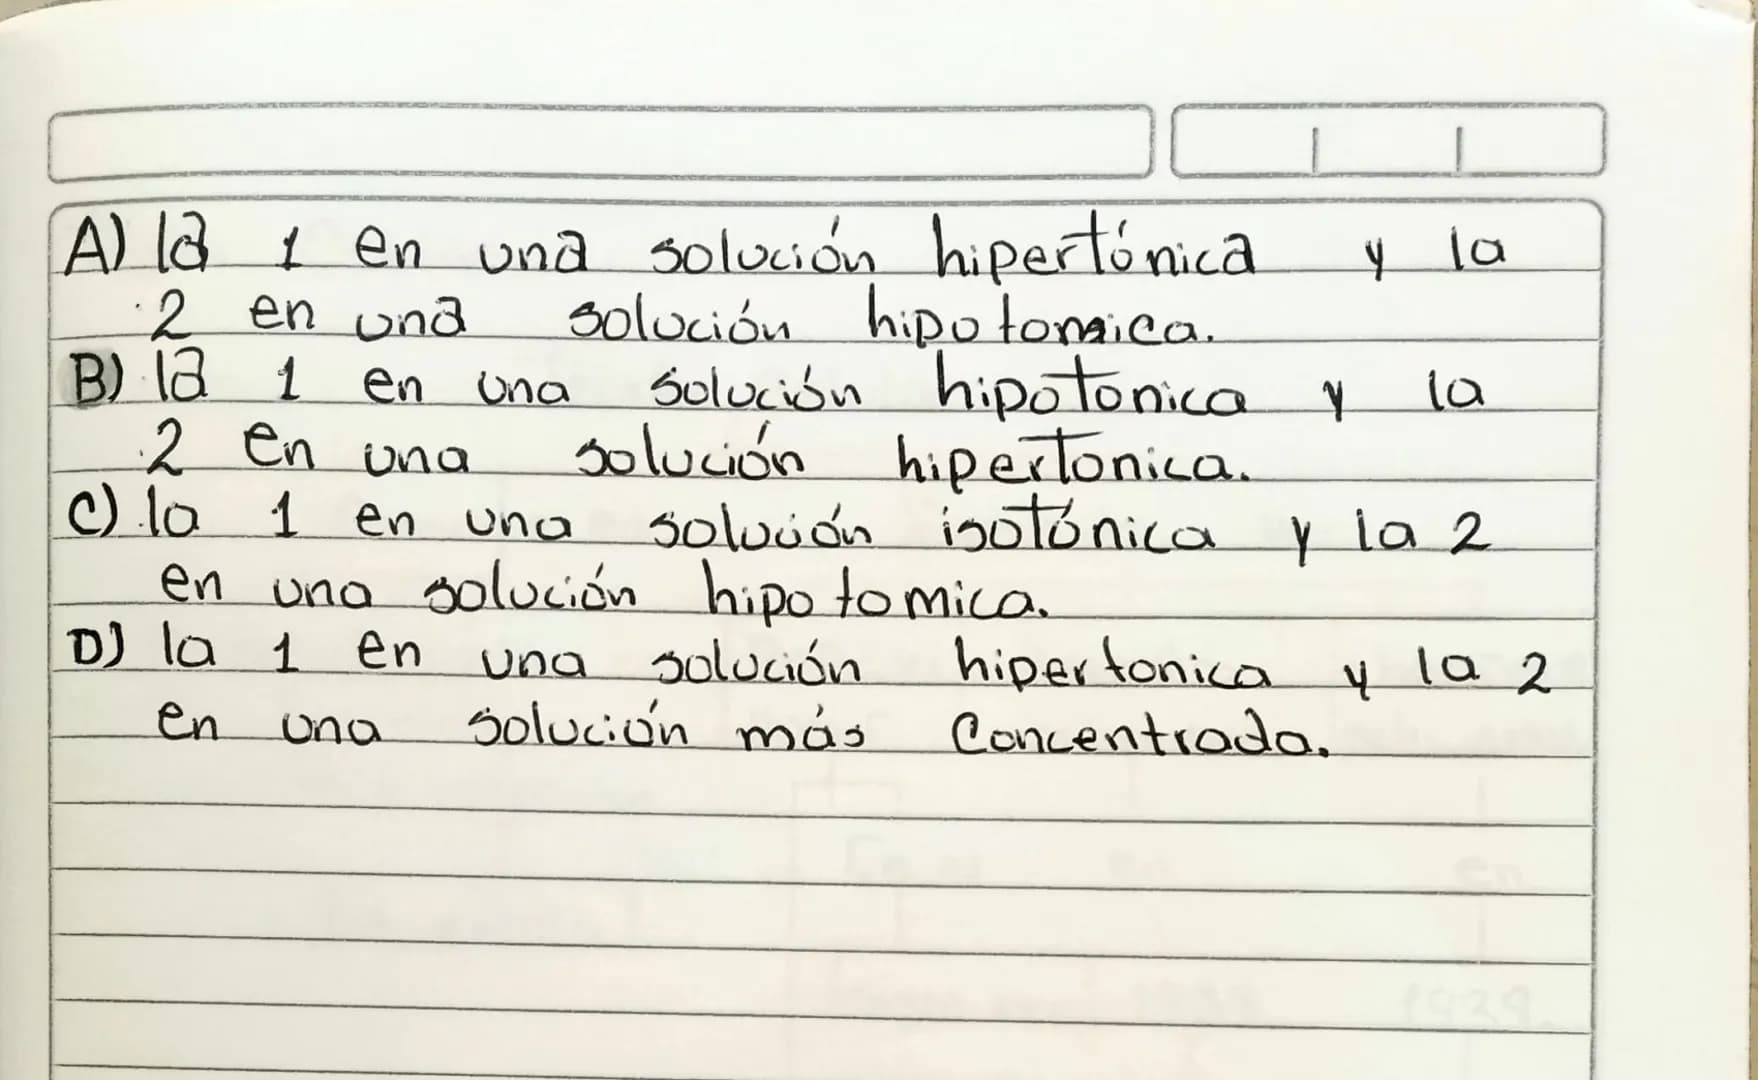 A) la 1 en una solución hipertónica y la
2 en una solución hipotonica.
B) la 1 en una solución hipotonica y la
2 en una solución hipertonica.
C) la 1 en una solución isotónica y la 2
en una solución hipotomica.
D) la 1 en una solución hipertonica y la 2
en una solución más concentrada.